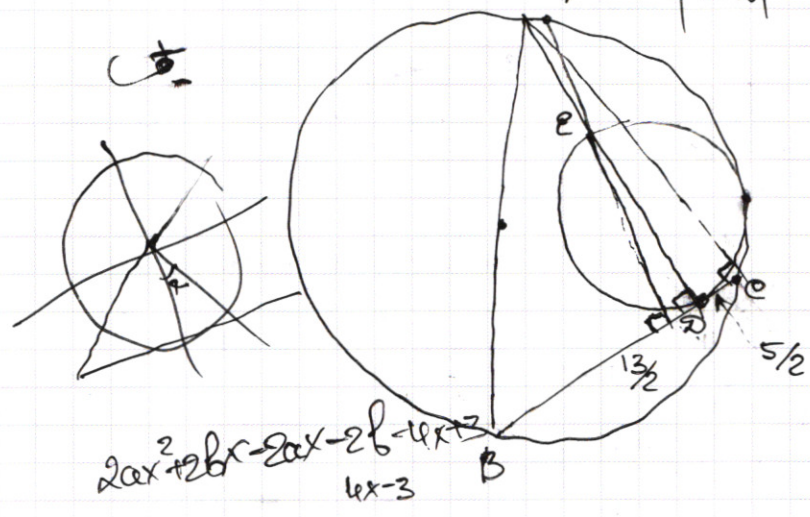 E
C
D
13/2
5/2
B
2ax²+2bx-2ax-2b-4x+3
4x-3